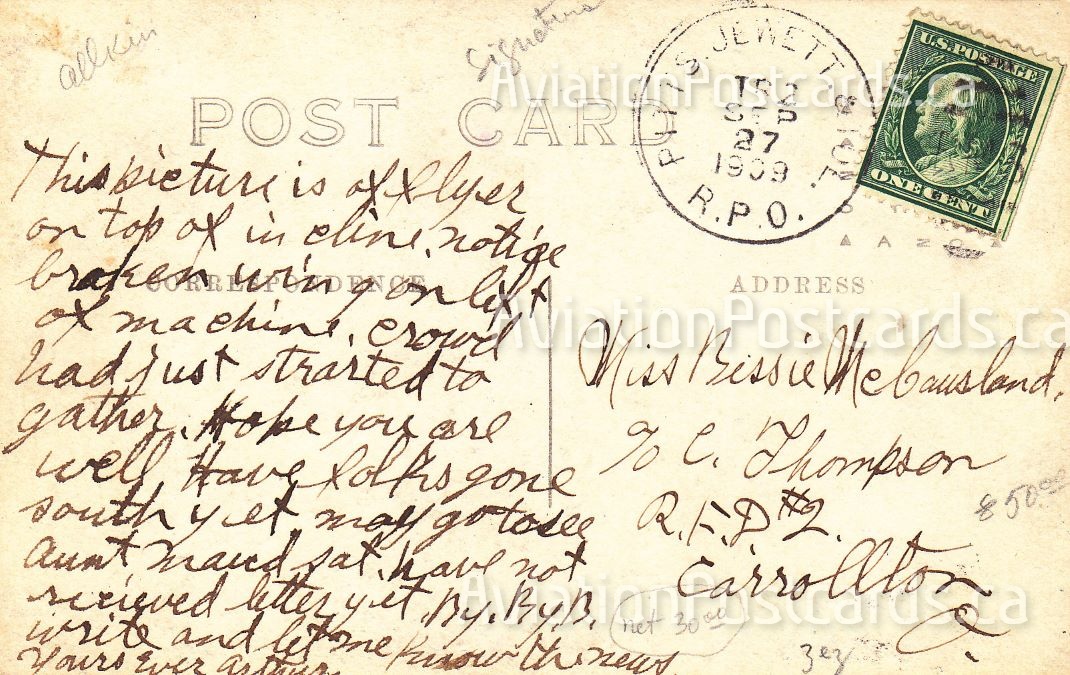 allken
signature
POST CARD
PITTS JEWETT & KEN.
TR 2
SEP
27
1909
R.P.O.
U.S. POSTAGE
ONE CENT
This picture is of flyer
on top of in cline. notice
broken wing on left
of machine. crowd
had just strarted to
gather. Hope you are
well Have folks gone
south yet. may go to see
aunt maud sat. have not
recieved letter yet. By. By. B.
write and let me know the news
Yours Ever arthur
CORRESPONDENCE
ADDRESS
Miss Bessie McCausland.
c/o C. Thompson
R.F.D. #2.
Carrollton
O.
$50.00
net 30.00
AviationPostcards.ca
AviationPostcards.ca
AviationPostcards.ca